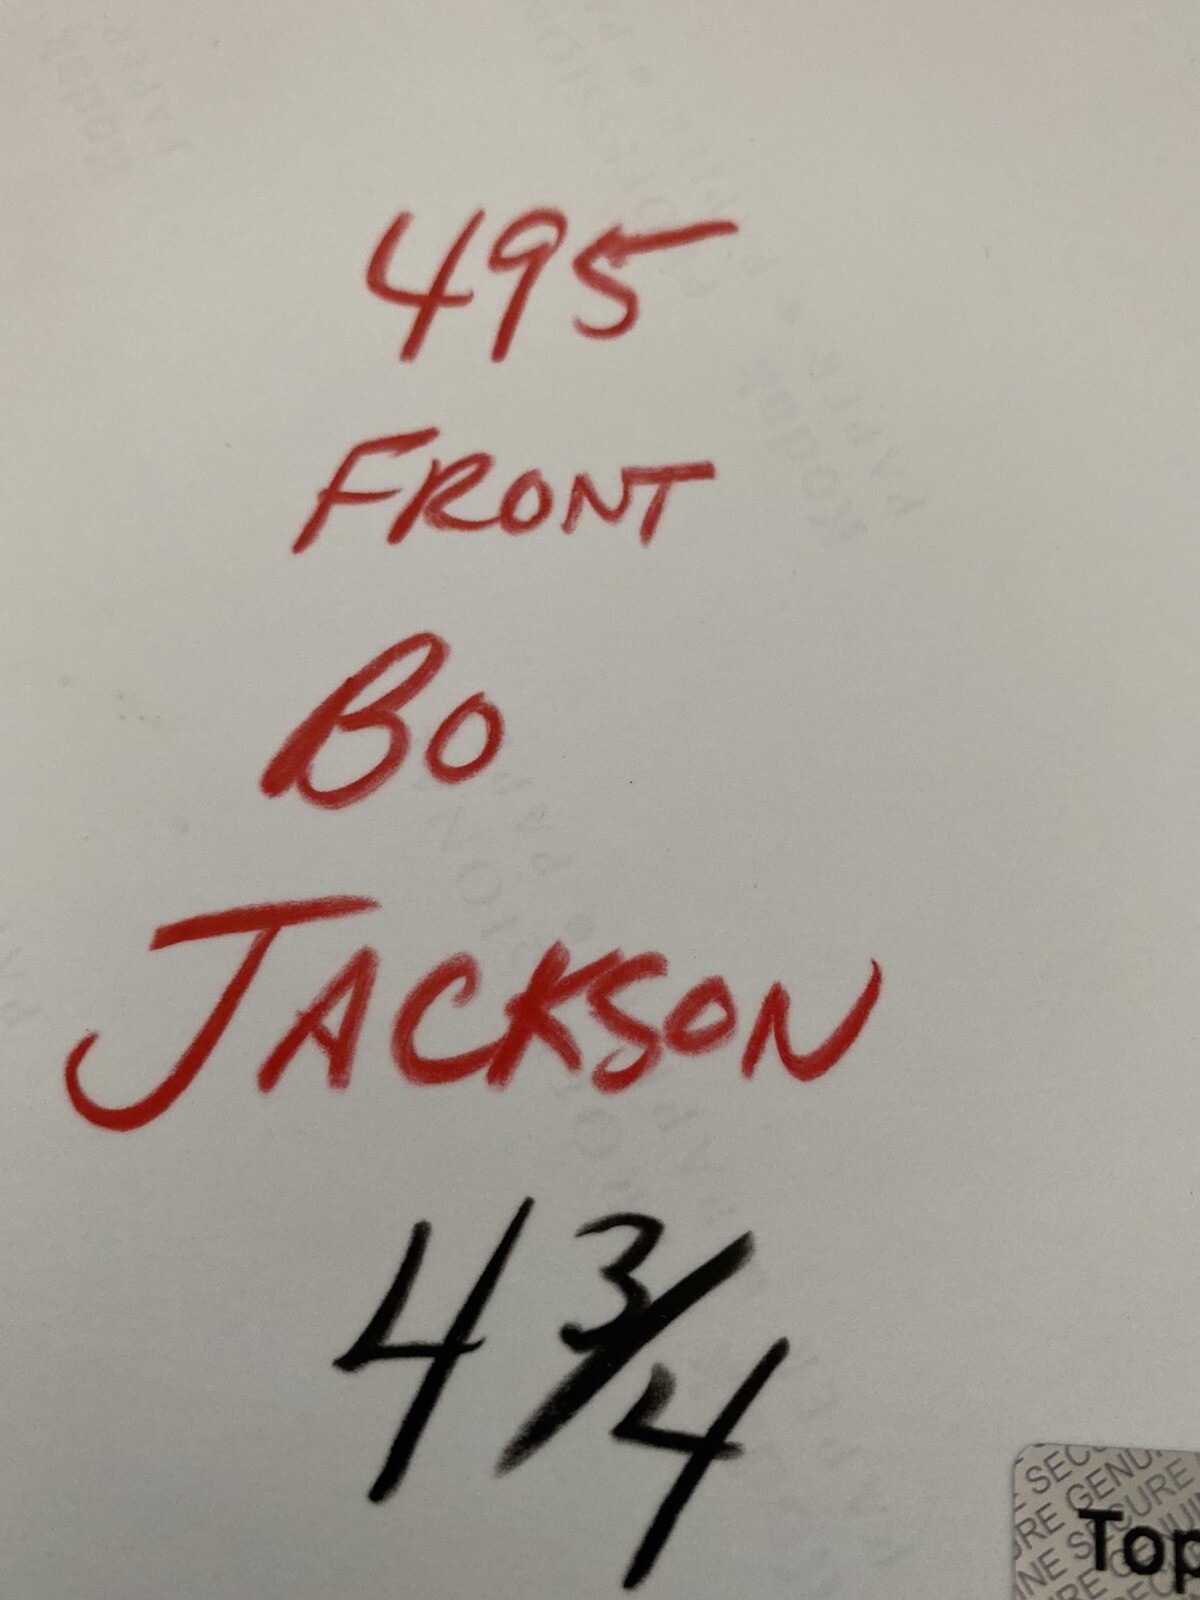 495
FRONT
BO
JACKSON
4 3/4
SECU
RE GENU
NE SECURE
Top